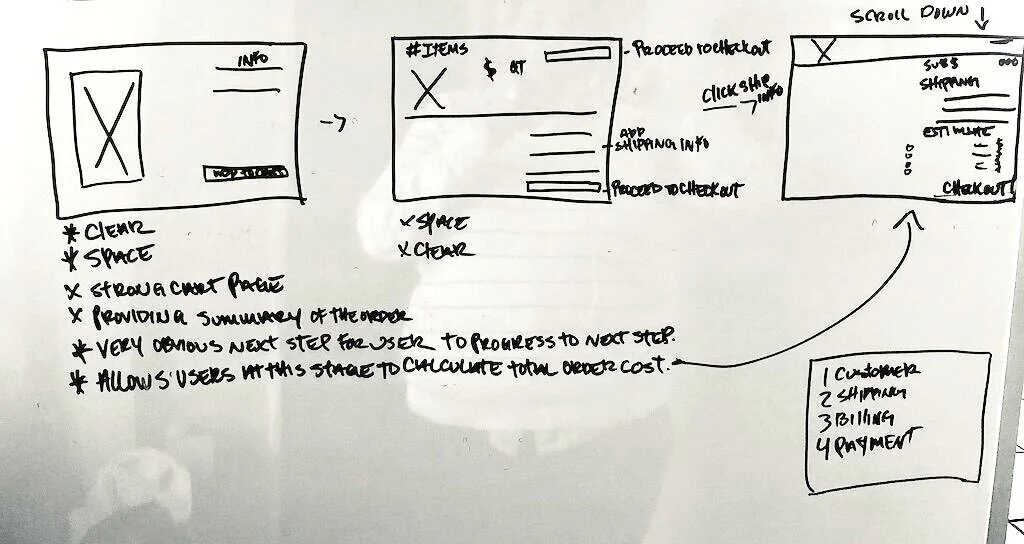 SCROLL DOWN
INFO
ADD TO CART
#ITEMS
$ QT
PROCEED TO CHECKOUT
ADD
SHIPPING INFO
PROCEED TO CHECKOUT
CLICK SHIP
INFO
SUB $
SHIPPING
ESTIMATE
CHECKOUT
* CLEAR
* SPACE
x STRONG CART PAGE
x PROVIDING SUMMARY OF THE ORDER
* VERY OBVIOUS NEXT STEP FOR USER TO PROGRESS TO NEXT STEP.
* ALLOWS USERS AT THIS STAGE TO CALCULATE TOTAL ORDER COST.
x SPACE
x CLEAR
1 CUSTOMER
2 SHIPPING
3 BILLING
4 PAYMENT